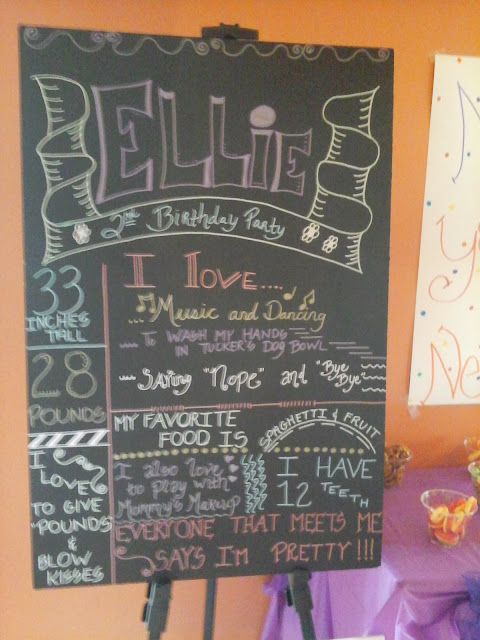 ELLiE
2nd Birthday Party
33
INCHES
TALL
28
POUNDS
I
LOVE
TO GIVE
"POUNDS"
&
BLOW
KISSES
I love....
...Music and Dancing
... To WASH MY HANDS
IN TUCKER'S DOG BOWL
... SAYING "Nope" and "Bye
Bye"
MY FAVORITE
FOOD IS
SPAGHETTI & FRUIT
I also love
to play with
Mommy's Makeup
I HAVE
12 TEETH
EVERYONE THAT MEETS ME
SAYS I'M PRETTY!!!
Ne